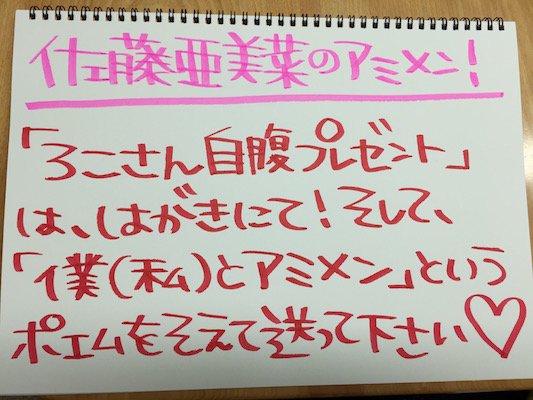 佐藤亜美菜のアミメン!
「ろこさん自腹プレゼント」
は、はがきにて!そして、
「僕(私)とアミメン」という
ポエムをそえて送って下さい♡